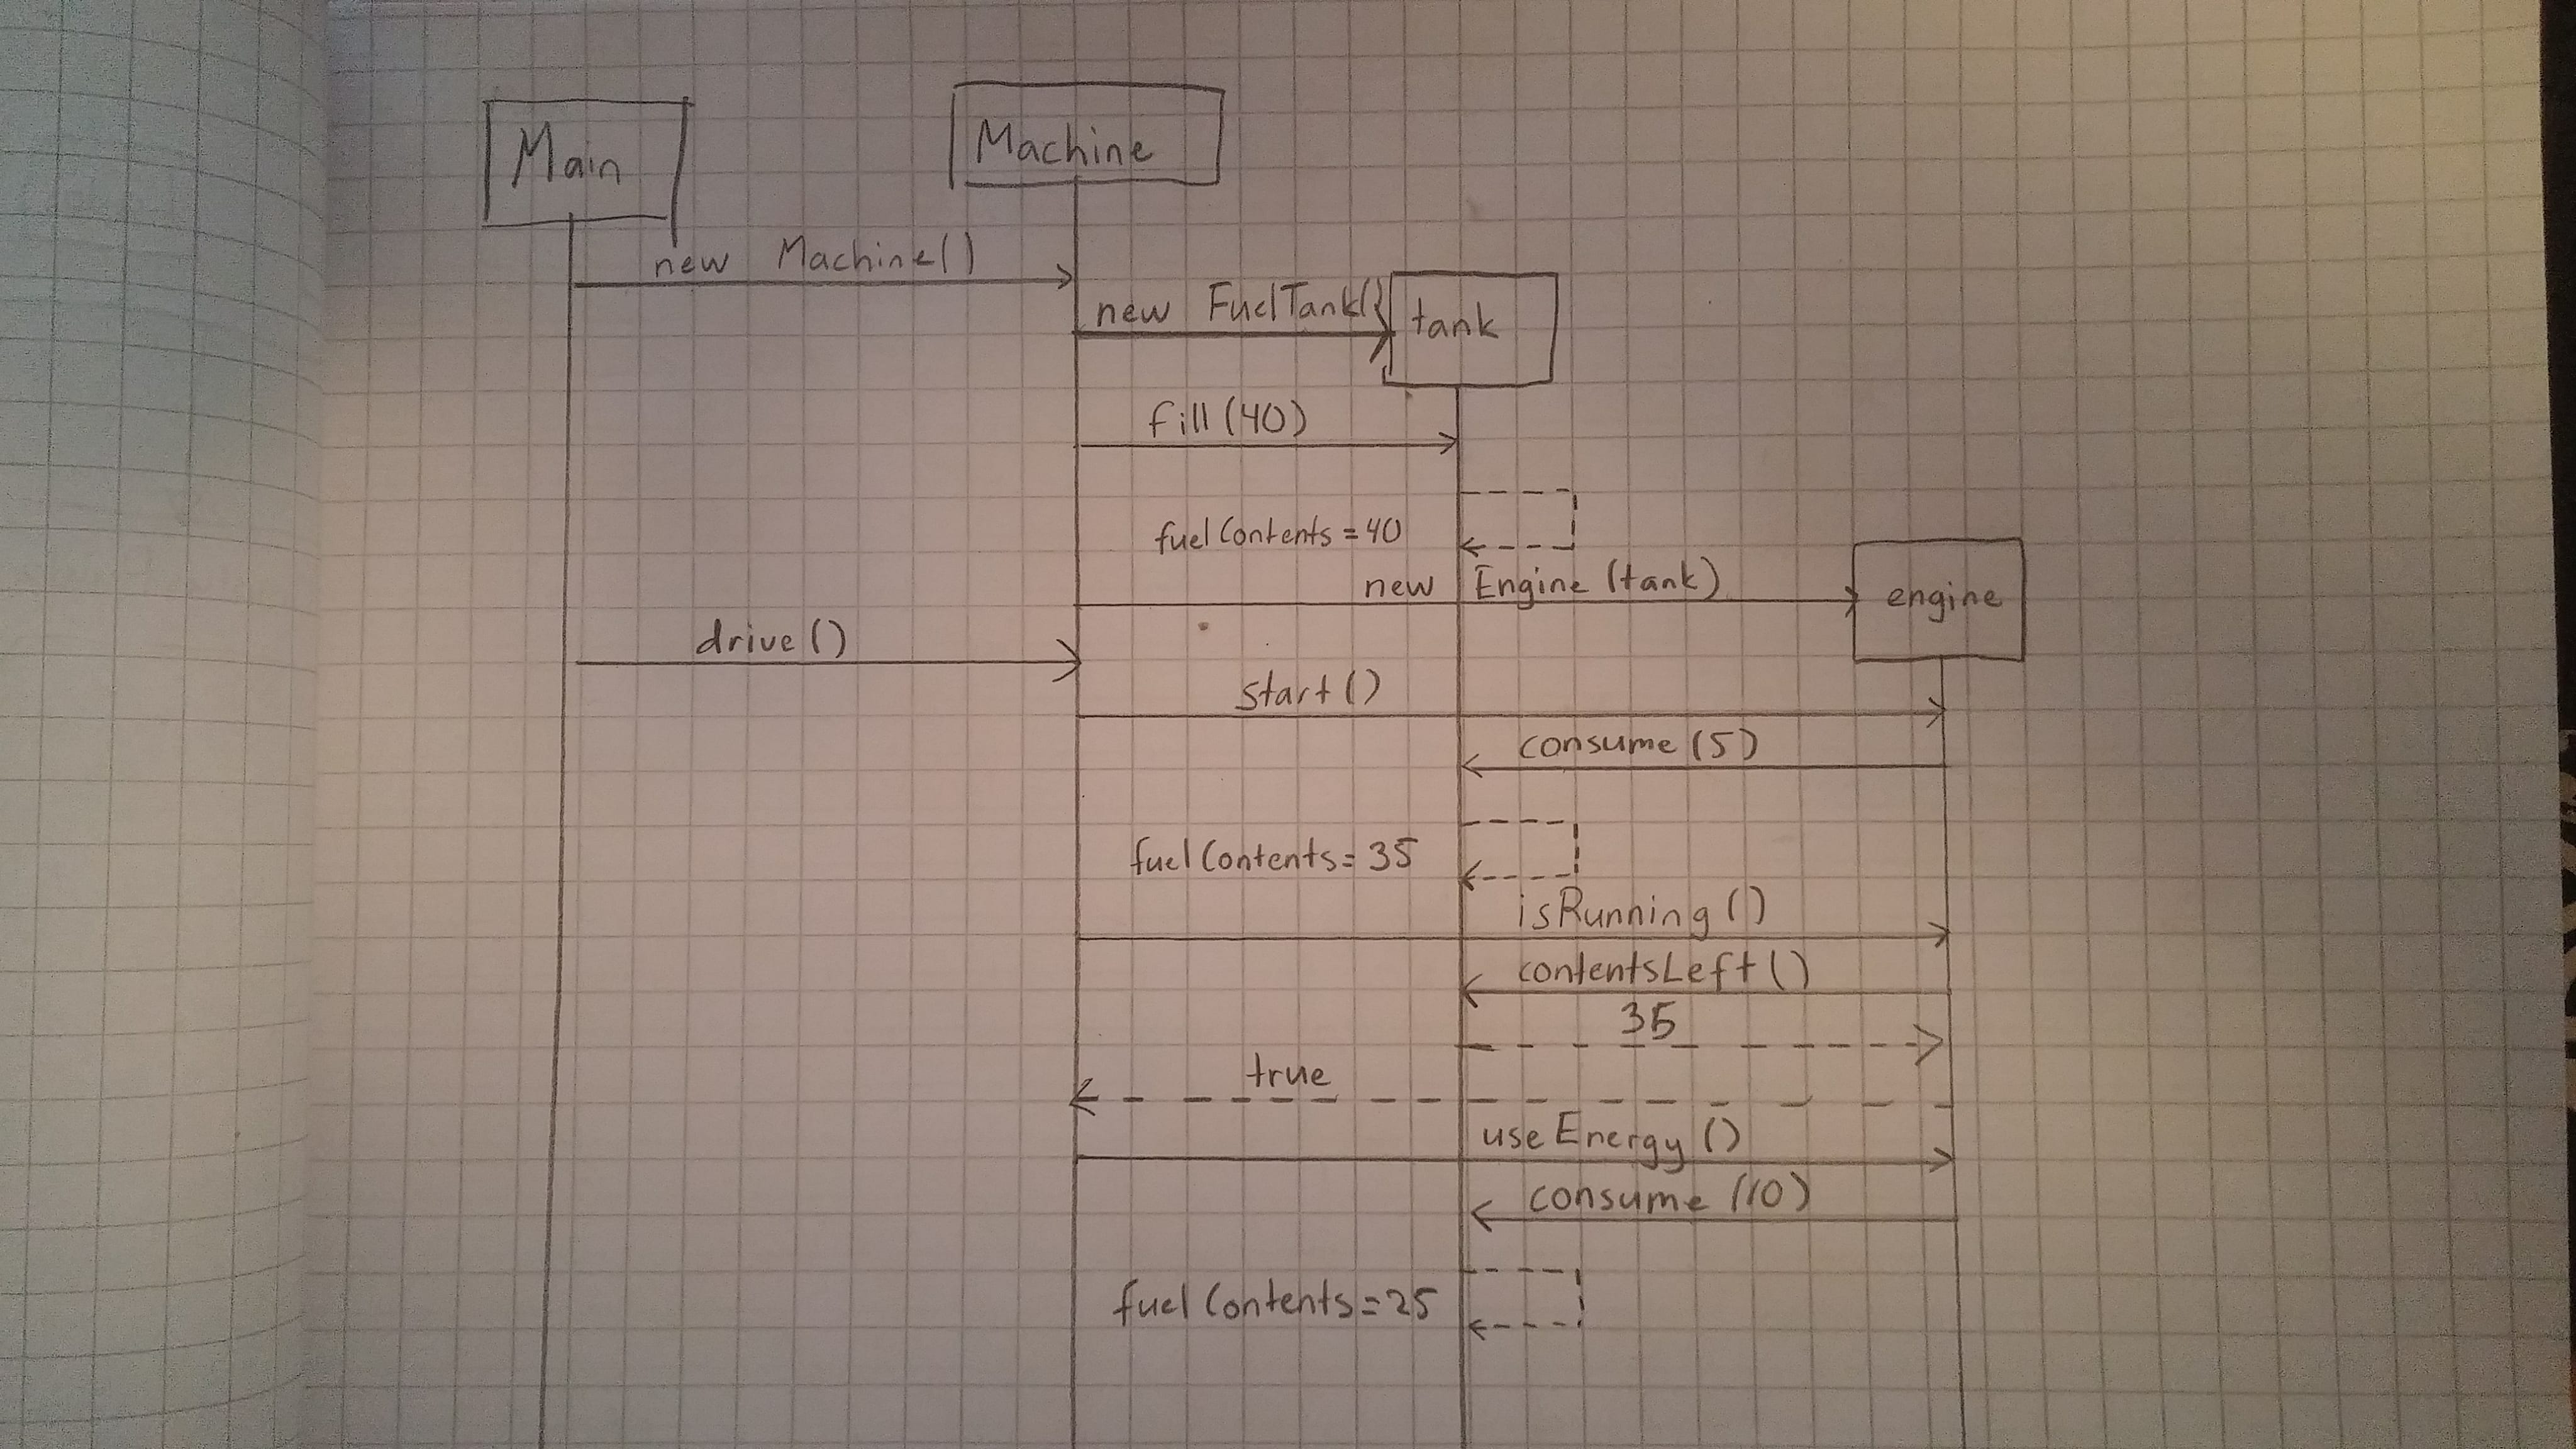 Main
Machine
new Machine()
new FuelTank()
tank
fill(40)
fuelContents=40
new Engine(tank)
engine
drive()
start()
consume(5)
fuelContents=35
isRunning()
contentsLeft()
35
true
useEnergy()
consume(10)
fuelContents=25